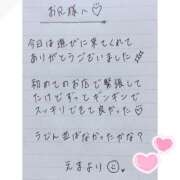 お兄様へ♡
今日は遊びに来てくれて
ありがとうございました
初めてのお店で緊張して
たけどずっとギンギンで
スッキリできて良かった♡
うどん並ばなかったかな?
えまより